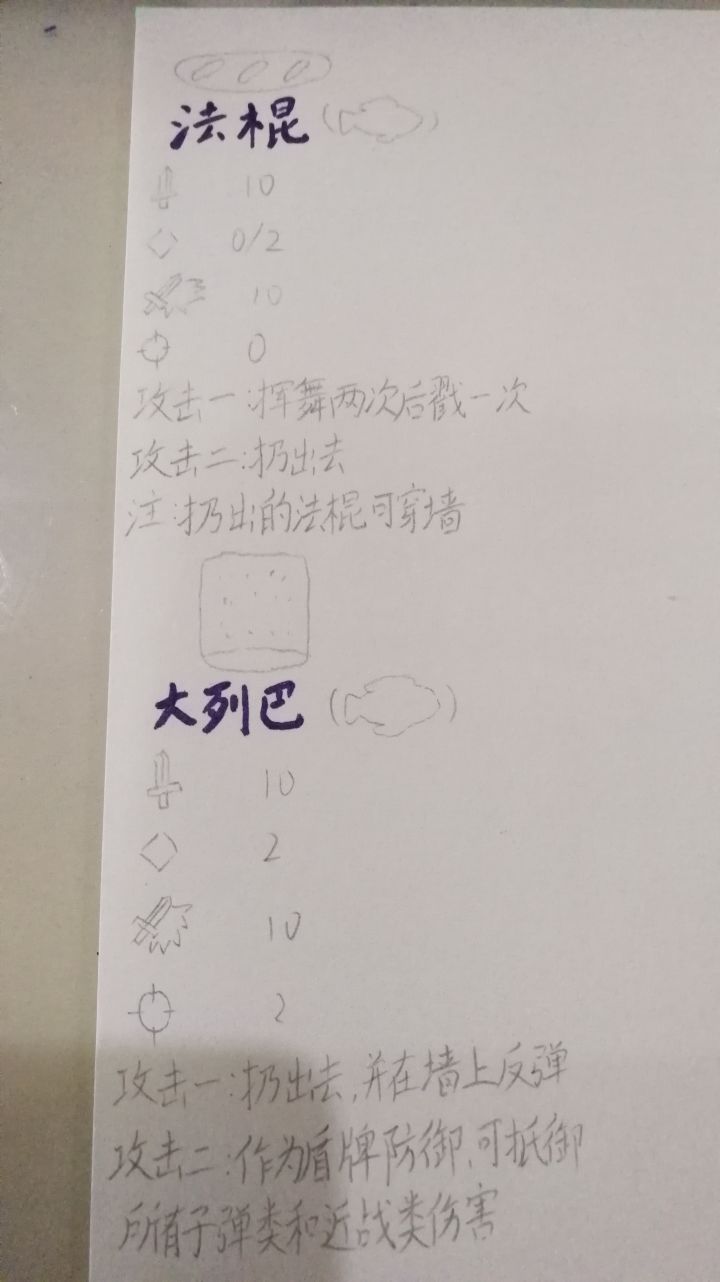 法棍( )
10
0/2
10
0
攻击一:挥舞两次后戳一次
攻击二:扔出去
注:扔出的法棍可穿墙
大列巴( )
10
2
10
2
攻击一:扔出去,并在墙上反弹
攻击二:作为盾牌防御,可抵御
所有子弹类和近战类伤害